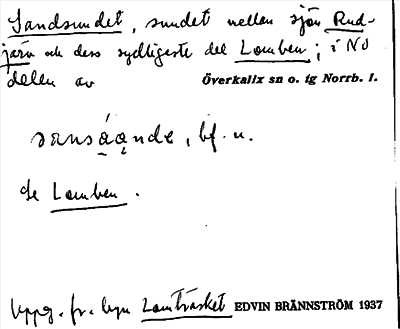 Sandsundet, sundet mellan sjön Rud-
järv och dess sydligaste del Lomben; i NO
delen av Överkalix sn o. tg Norrb. l.
bf. n.
Se Lomben.
Uppg. fr. byn Lomträsket EDVIN BRÄNNSTRÖM 1937